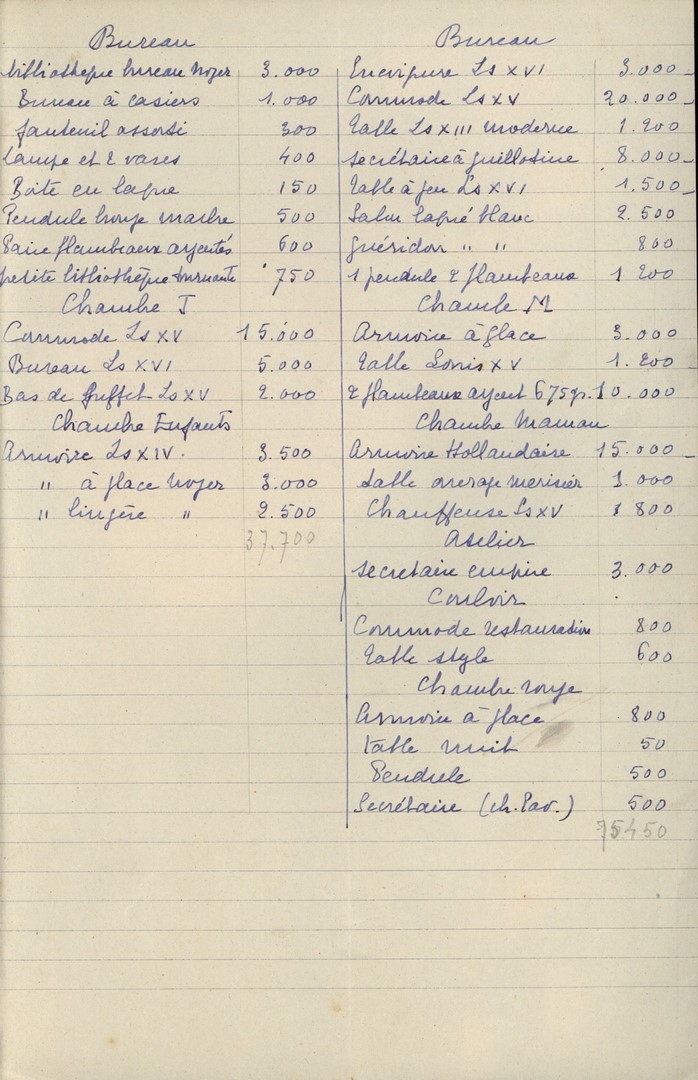 Bureau
bibliothèque bureau noyer 3.000
Bureau à casiers 1.000
fauteuil assorti 300
Lampe et 2 vases 400
Boîte en laque 150
Pendule rouge marbre 500
Paire flambeaux argentés 600
petite bibliothèque tournante 750
Chambre J
Commode Ls XV 15.000
Bureau Ls XVI 5.000
Bas de Buffet Ls XV 2.000
Chambre Enfants
Armoire Ls XIV. 3.500
" à glace noyer 3.000
" lingère " 2.500
37.700
Bureau
Ls XVI 3.000
Commode Ls XV 20.000
Table Ls XIII moderne 1.200
secrétaire à guillotine 8.000
Table à jeu Ls XVI 1.500
Salon laqué blanc 2.500
Guéridon " " 800
1 pendule 2 flambeaux 1 200
Chambre M
Armoire à glace 3.000
Table Louis XV 1.200
2 flambeaux argent 675gr. 10.000
Chambre Maman
Armoire Hollandaise 15.000
table ouvrage merisier 1.000
Chauffeuse Ls XV 1 800
Atelier
secretaire empire 3.000
Couloir
Commode restauration 800
Table style 600
Chambre rouge
Armoire à glace 800
table nuit 50
Pendule 500
Secrétaire (ch. Pav.) 500
75450